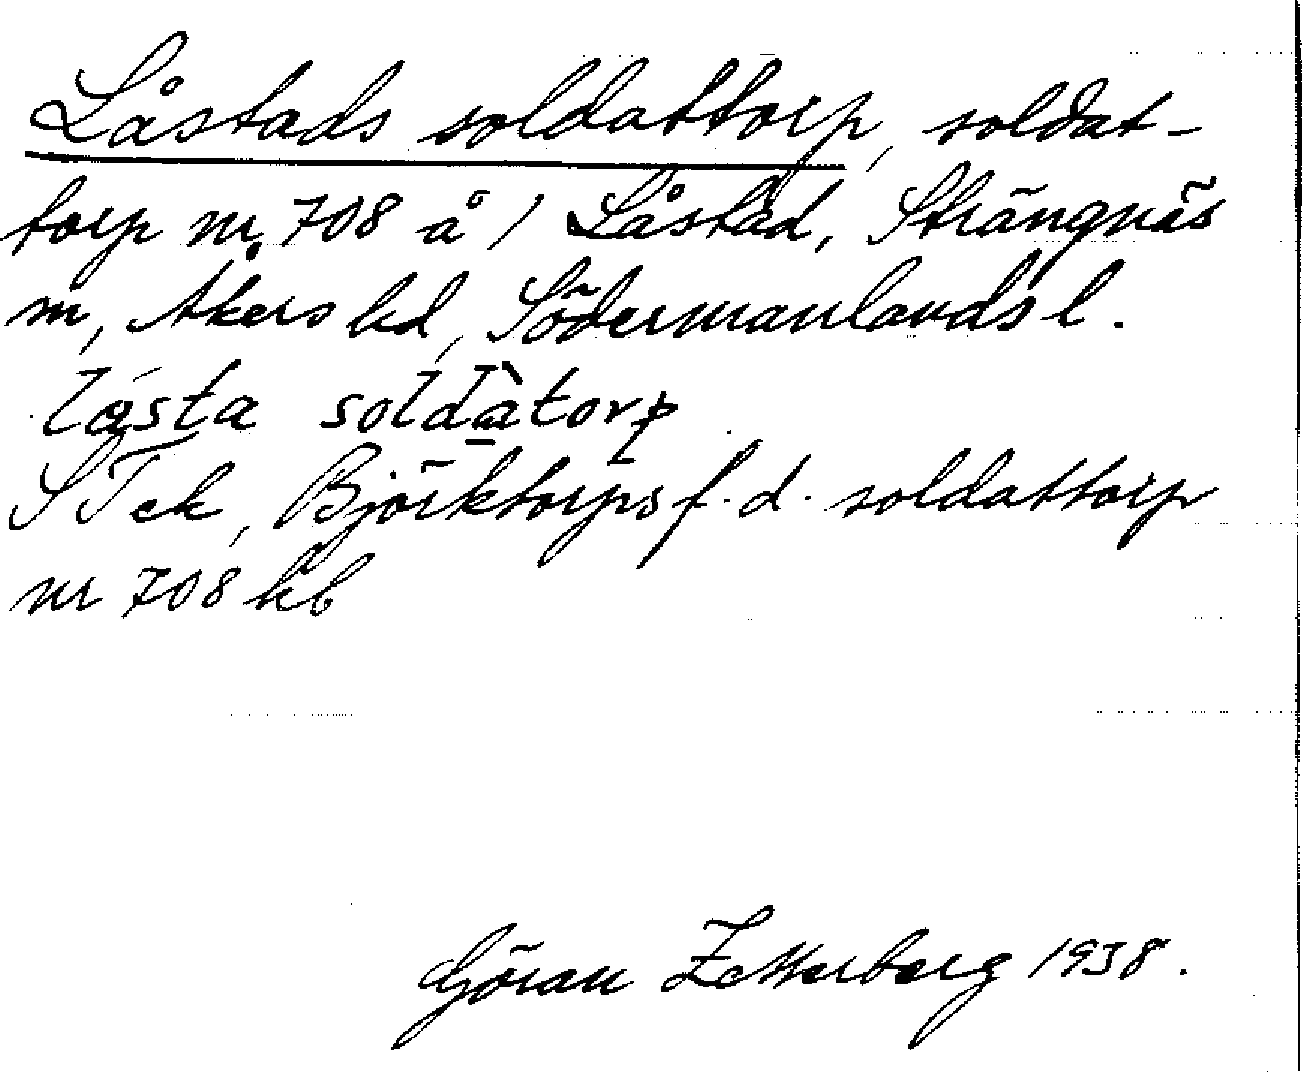 Låstads soldattorp, soldat-
torp nr. 708 å 1 Låstad, Strängnäs
m, Åkers hd, Södermanlands l.
låsta soldàtorp
STek, Björktorps f.d. soldattorp
nr 708 kb
Göran Zetterberg 1938.